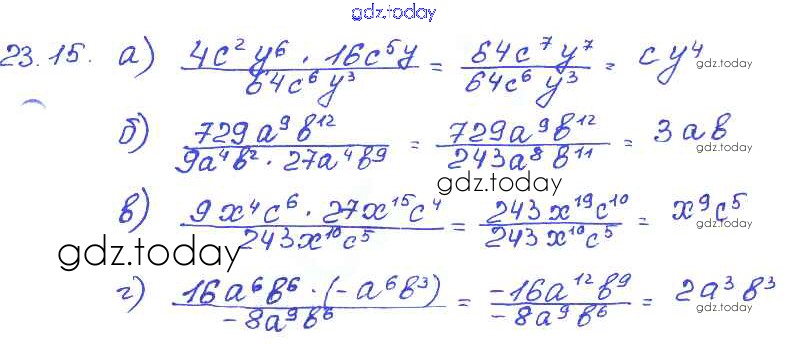 gdz.today
23.15. а) (4c²y⁶ · 16c⁵y)/(64c⁶y³) = (64c⁷y⁷)/(64c⁶y³) = cy⁴ gdz.today
gdz.today
б) (729a⁹b¹²)/(9a⁴b² · 27a⁴b⁹) = (729a⁹b¹²)/(243a⁸b¹¹) = 3ab gdz.today
gdz.today
в) (9x⁴c⁶ · 27x¹⁵c⁴)/(243x¹⁰c⁵) = (243x¹⁹c¹⁰)/(243x¹⁰c⁵) = x⁹c⁵ gdz.today
gdz.today
gdz.today
г) (16a⁶b⁶ · (-a⁶b³))/(-8a⁹b⁶) = (-16a¹²b⁹)/(-8a⁹b⁶) = 2a³b³
gdz.today